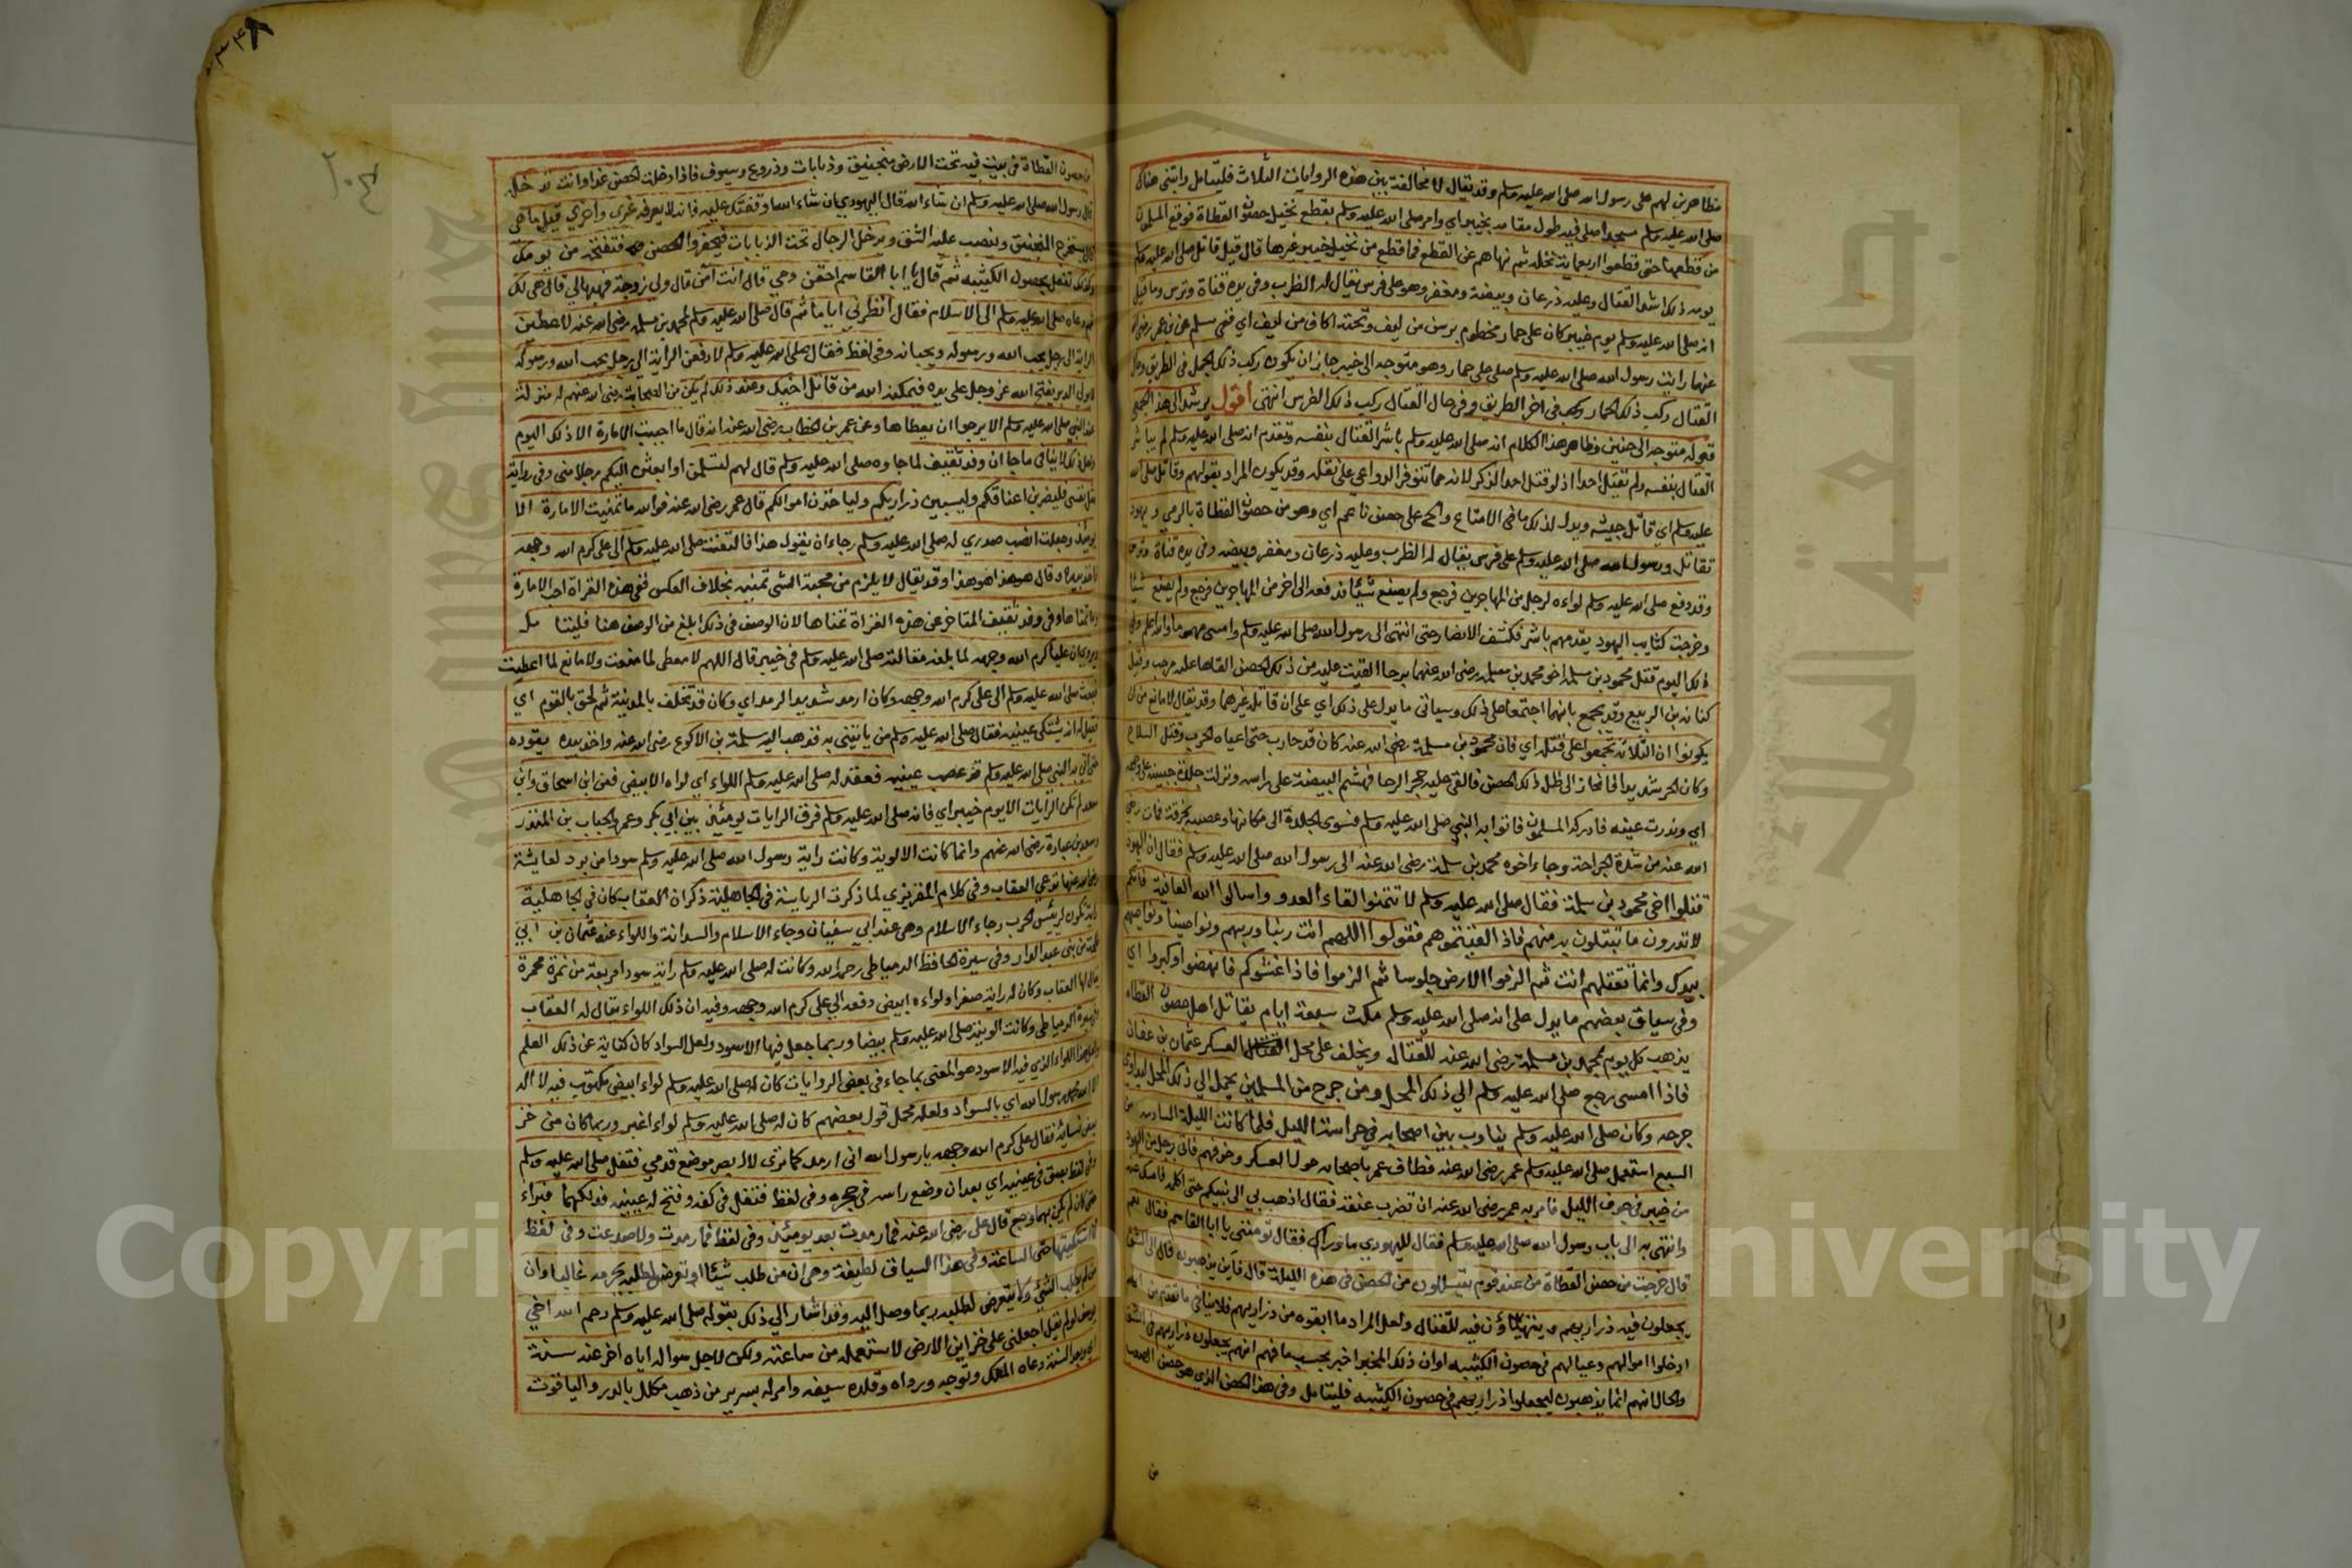 متظاهرين لهم على رسول الله صلى الله عليه وسلم وقد يقال لا مخالفة بين هذه الروايات الثلاث فليتأمل وابتنى هناك
صلى الله عليه وسلم مسجدا صلى فيه طول مقامه بخيبر اي وامر صلى الله عليه وسلم بقطع نخيل حصون النطاة فوقع المسلمون
من قطعها حتى قطعوا اربعماية نخلة ثم نهاهم عن القطع فما قطع من نخيل خيبر غيرها قال قيل قاتل صلى الله عليه وسلم
يومه ذلك اشد القتال وعليه درعان وبيضة ومغفر وهو على فرس يقال له الظرب وفي يده قناة وترس وما قيل
انه صلى الله عليه وسلم يوم خيبر كان على حمار مخطوم برسن من ليف وتحته اكاف من ليف اي ففي مسلم عن بن عمر رضى الله
عنهما رايت رسول الله صلى الله عليه وسلم صلى على حمار وهو متوجه الى خيبر جاز ان يكون ركب ذلك الحمار في الطريق وحال
القتال ركب ذلك الحمار ركب في اخر الطريق وفي حال القتال ركب ذلك الفرس انتهى اقول يرشد الى هذا الجمع
قوله متوجه الى حنين وظاهر هذا الكلام انه صلى الله عليه وسلم باشر القتال بنفسه وتقدم انه صلى الله عليه وسلم لم يباشر
القتال بنفسه ولم تقتل احدا اذ لو قتل احدا لذكر لانه مما تتوفر الدواعي على نقله وقد يكون المراد بقولهم وقاتل صلى الله
عليه وسلم اي قاتل جيشه ويدل لذلك ما في الامتاع والح على حصن ناعم اي وهو من حصون النطاة بالرمي ويهود
تقاتل ورسول الله صلى الله عليه وسلم على فرس يقال له الظرب وعليه درعان ومغفر وبيضه وفي يده قناة وترس
وقد دفع صلى الله عليه وسلم لواءه لرجل من المهاجرين فرجع ولم يصنع شيئا فدفعه الى اخر من المهاجرين فرجع ولم يصنع شيئا
وخرجت كتايب اليهود يقدمهم ياسر فكشف الانصار حتى انتهى الى رسول الله صلى الله عليه وسلم وامسى مهموما والله اعلم وفي
ذلك اليوم قتل محمود بن مسلمة اخو محمد بن مسلمه رضى الله عنهما برحا القيت عليه من ذلك الحصن القاها عليه مرحب وقيل
كنانه بن الربيع وقد يجمع بانهما اجتمعا على ذلك وسياتي ما يدل على ذلك اي على ان قاتله غيرهما وقد يقال لا مانع من ان
يكونوا ان الثلاثه تجمعوا على قتله اي فان محمود بن مسلمة رضى الله عنه كان قد حارب حتى اعياه الحرب وثقل السلاح
وكان الحر شديدا فانحاز الى ظل ذلك الحصن فالقى عليه حجر الرحا فهشم البيضة على راسه ونزلت جلدة جبينه على وجهه
اي وندرت عينه فادركه المسلمون فاتوا به النبي صلى الله عليه وسلم فسوى الجلدة الى مكانها وعصبه بخرقة فمات رضى
الله عنه من شدة الجراحة وجاء اخوه محمد بن سلمة رضى الله عنه الى رسول الله صلى الله عليه وسلم فقال ان اليهود
قتلوا اخى محمود بن سلمة فقال صلى الله عليه وسلم لا تتمنوا لقاء العدو واسالوا الله العافية فانكم
لا تدرون ما تبتلون به منهم فاذا لقيتموهم فقولوا اللهم انت ربنا وربهم ونواصينا ونواصيهم
بيدك وانما تقتلهم انت ثم الزموا الارض جلوسا ثم الزموا فاذا غشوكم فانهضوا وكبروا اي
وفي سياق بعضهم ما يدل على انه صلى الله عليه وسلم مكث سبعة ايام يقاتل اهل حصون النطاة
يذهب كل يوم بمحمد بن مسلمة رضى الله عنه للقتال ويخلف على محل العسكر عثمان بن عفان
فاذا امسى رجع صلى الله عليه وسلم الي ذلك المحل ومن جرح من المسلمين يحمل الي ذلك المحل ليداوي
جرحه وكان صلى الله عليه وسلم يناوب بين اصحابه في حراسة الليل فلما كانت الليلة السادسه من
السبع استعمل صلى الله عليه وسلم عمر رضى الله عنه فطاف عمر باصحابه حول العسكر وخوفهم فاتى برجل من اليهود
من خيبر في جوف الليل فامر به عمر رضى الله عنه ان تضرب عنقه فقال اذهب بي الى نبيكم حتى اكلمه فامسك عنه
وانتهى به الى باب رسول الله صلى الله عليه وسلم فقال لليهودي ما وراك فقال تومنني يا ابا القاسم فقال نعم
قال خرجت من حصن النطاة من عند قوم يتسللون من الحصن في هذه الليلة قال فاين يذهبون قال الى الشق
يجعلون فيه ذراريهم ويتهيئون فيه للقتال ولعل المراد ما ابقوه من ذراريهم فلا ينافي ما تقدم من انهم
ادخلوا اموالهم وعيالهم في حصون الكتيبه اوان ذلك المخبر اخبر بحسب ما فهم انهم يجعلون ذراريهم في الشق
والحال انهم انما يذهبون ليجعلوا ذراريهم في حصون الكتيبه فليتامل وفي هذا الحصن الذي هو حصن الصعب
من
٣٤٨
من حصون النطاة في بيت فيه تحت الارض منجنيق ودبابات ودروع وسيوف فاذا دخلت الحصن غدا وانت تدخله
قال رسول الله صلى الله عليه وسلم ان شاء الله قال اليهودي ان شاء الله اوقفتك عليه فانه لا يعرفه غيري واخرى قيل ما هي
قال يستخرج المنجنيق وينصب علي الشق ويدخل الرجال تحت الدبابات فيحفروا الحصن فتفتحه من يومك
وكذلك تفعل بحصون الكتيبه ثم قال يا ابا القاسم احقن دمي قال انت آمن قال ولي زوجة فهبها لي قال هي لك
ثم دعاه صلى الله عليه وسلم الى الاسلام فقال انظرني اياما ثم قال صلى الله عليه وسلم لمحمد بن مسلمه رضى الله عنه لاعطين
الراية الى رجل يحب الله ورسوله ويحبانه وفي لفظ فقال صلى الله عليه وسلم لادفعن الراية الى رجل يحب الله ورسوله
لا يولي الدبر يفتح الله عز وجل على يده فيمكنه الله من قاتل اخيك وعند ذلك لم يكن من الصحابة رضى الله عنهم له منزلة
عند النبي صلى الله عليه وسلم الا يرجوا ان يعطاها وعن عمر بن الخطاب رضى الله عنه انه قال ما احببت الامارة الا ذلك اليوم
ولعل ذلك لا ينافي ما جا ان وفد ثقيف لما جاوه صلى الله عليه وسلم قال لهم لتسلمن او ابعثن اليكم رجلا مني وفي رواية
مثل نفسي فليضربن اعناقكم وليسبين ذراريكم ولياخذن اموالكم قال عمر رضى الله عنه فوالله ما تمنيت الامارة الا
يومئذ وجعلت انصب صدري له صلى الله عليه وسلم رجاء ان يقول هذا فالتفت صلى الله عليه وسلم الي علي كرم الله وجهه
فاخذ بيده وقال هو هذا هو هذا وقد يقال لا يلزم من محبة الشى تمنيه بخلاف العكس ففي هذه الغزاة احب الامارة
وما تمناها وفي وفد ثقيف المتاخر عن هذه الغزاة تمناها لان الوصف في ذلك ابلغ من الوصف هنا فليتامل
ويروى ان عليا كرم الله وجهه لما بلغه مقالته صلى الله عليه وسلم في خيبر قال اللهم لا معطى لما منعت ولا مانع لما اعطيت
فبعث صلى الله عليه وسلم الى علي كرم الله وجهه وكان ارمد شديد الرمد اي وكان قد تخلف بالمدينة ثم لحق بالقوم اي
فقيل له انه يشتكى عينيه فقال صلى الله عليه وسلم من ياتيني به فذهب اليه سلمة بن الاكوع رضى الله عنه واخذ بيده يقوده
حتى اتى به النبي صلى الله عليه وسلم قد عصب عينيه فعقد له صلى الله عليه وسلم اللواء اي لواه الابيض فعن ابن اسحاق وابن
سعد لم تكن الرايات الا يوم خيبر اي فانه صلى الله عليه وسلم فرق الرايات يومئذ بين ابي بكر وعمر والحباب بن المنذر
وسعد بن عبادة رضى الله عنهم وانما كانت الالوية وكانت راية رسول الله صلى الله عليه وسلم سودا من برد لعايشة
رضى الله عنها تدعي العقاب وفي كلام المقريزي لما ذكرت الرياسة في الجاهلية ذكر ان العقاب كان في الجاهلية
راية تكون لرئيس الحرب وجاء الاسلام وهى عند ابي سفيان وجاء الاسلام والسدانة واللواء عند عثمان بن ابي
طلحة من بني عبد الدار وفي سيرة الحافظ الدمياطى رحمه الله وكانت له صلى الله عليه وسلم راية سودا مربعة من نمرة مخمرة
يقال لها العقاب وكان له راية صفرا ولواءه ابيض دفعه الي علي كرم الله وجهه وفيه ان ذلك اللواء يقال له العقاب
وفي سيرة الدمياطى وكانت الويته صلى الله عليه وسلم بيضا وربما جعل فيها الاسود ولعل السواد كان كناية عن ذلك العلم
ولعل هذا اللواء الذي فيه الاسود هو المعنى بما جاء في بعض الروايات كان له صلى الله عليه وسلم لواء ابيض مكتوب فيه لا اله
الا الله محمد رسول الله اي بالسواد ولعله محمل قول بعضهم كان له صلى الله عليه وسلم لواء اغبر وربما كان من خز
بعض نسائه فقال على كرم الله وجهه يا رسول الله انى ارمد كما ترى لا ابصر موضع قدمي فتفل صلى الله عليه وسلم
وفي لفظ بصق في عينيه اي بعد ان وضع راسه في حجره وفي لفظ فتفل في كفه وفتح له عينيه فدلكهما فبراء
حتى كان لم يكن بهما وجع قال على رضى الله عنه فما رمدت بعد يومئذ وفي لفظ فما رمدت ولا صدعت وفي لفظ
فما اشتكيتها حتى الساعة وفي هذا السياق لطيفة وهى ان من طلب شيئا او تعرض لطلبه يحرمه غالبا وان
من لم يطلب الشئ ولا يتعرض لطلبه ربما وصل اليه وقد اشار الي ذلك بقوله صلى الله عليه وسلم رحم الله اخي
يوسف لو لم يقل اجعلني على خزاين الارض لاستعمله من ساعته ولكن لاجل سواله اياه اخر عنه سنة
اي وبعد السنة دعاه الملك وتوجه ورداه وقلده سيفه وامر له بسرير من ذهب مكلل بالدر والياقوت
جامعة الملك سعود
Copyright © King Saud University